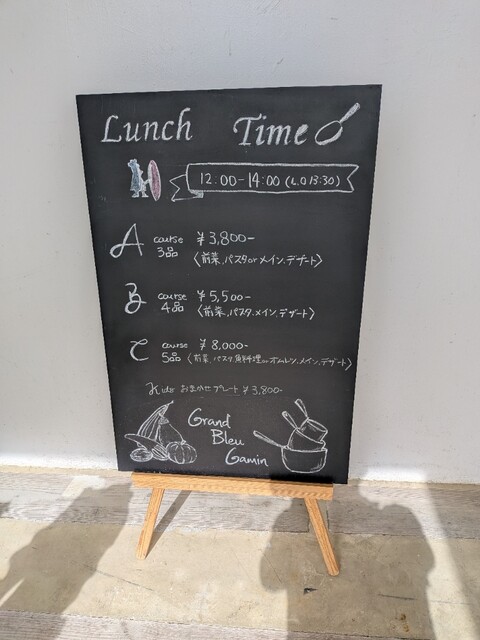 Lunch Time
12:00-14:00 (L.O 13:30)
A course ¥3,800-
3品 〈前菜、パスタorメイン、デザート〉
B course ¥5,500-
4品 〈前菜、パスタ、メイン、デザート〉
C course ¥8,000-
5品 〈前菜、パスタ、魚料理orオムレツ、メイン、デザート〉
Kids おまかせプレート ¥3,800-
Grand
Bleu
Gamin